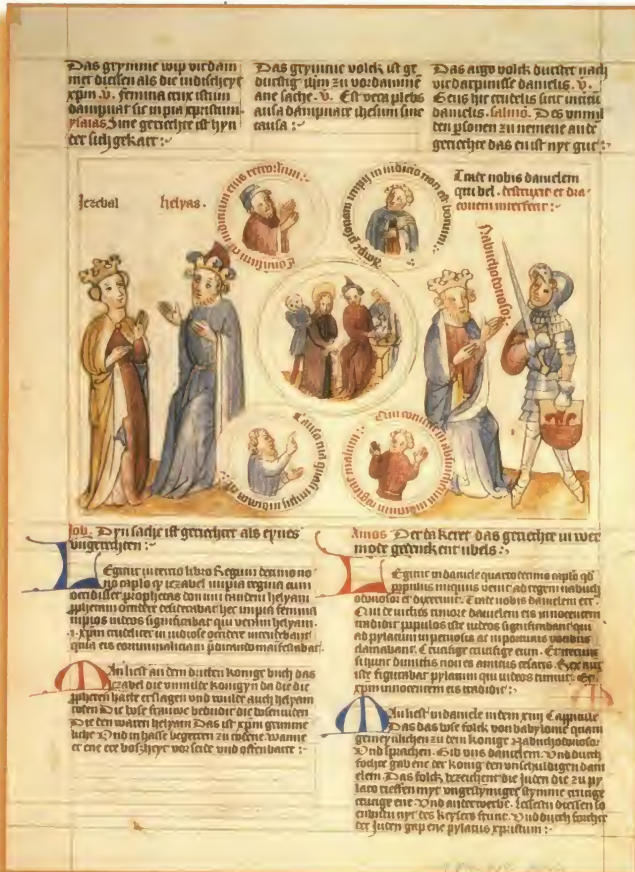 Das grymme wip virdam
met diessen als die iudischeyt
xpm. v. femina trux istum
dampnat sic impia xpistum.
ysaias Sine geriechte ist hyn
der sich gekart :~
Das grymme volck ist ge
durstig ihm zu vordamme
ane sache. v. Est vera plebs
ausa dampnare ihesum sine
causa :~
Das argo volck durstet nach
virdarpnisse danielis. v.
Gens hic crudelis sunt
danielis. salmo. Des vnmil
den psonen zu nemene an de
geriechte das en ist nyt gut :~
Jezebal
helyas.
Trate nobis danielem
qui bel. destruxit et dra
conem interfecit :~
Nabuchodonosor
Job. Dyn sache ist geriechtet als eynes
vngerechten :~
Amos Der da keret das geriechte in wer
mote gedenckent ubels :~
Legitur in tercio libro Regum decimo no
no caplo q iezabel impia regina cum
occidisset prophetas domini tandem helyam
pphetam occidere desiderabat hec impia femina
impios iudeos significat qui verum helyam
.i. xpm crudeliter inuidiose occidere intendebant
quia eis eorum maliciam predicando manifestabat
Man liest an dem dritten konige buch das
Jezabel die vnmilde konigyn da die die
ppheten hatte erslagen vnd wulte auch helyam
toten Die bose frauwe beduit die bosen iuden
Die den waren helyam Das ist xpm grymme
liche vnd in hasse begerten zu todene. wanne
er ene ere boszheyt vor seite vnd offenbarte :~
Legitur in daniele quarto decimo caplo qd
populus iniquus venit ad regem nabuch
odonosor et dixerunt. Trate nobis danielem etc.
Qui deuictus timore danielem eis innocentem
tradidit populus iste iudeos significabant qui
ad pylatum inperuosis ac inportunis vocibus
clamabant. Crucifige crucifige eum. Et iterum
si hunc dimittis non es amicus cesaris. Rex aut
iste figurabat pylatum qui iudeos timuit. Et
xpm innocentem eis tradidit :~
Man liest in daniele in dem xiiii Cappittule
Das das bose folck von babylonie quam
gemeynlichen zu dem konige Nabuchodonosor
Vnd sprachen. Gib vns danielem. Vnd durch
fochte gab ene der konig den vnschuldigen dani
elem. Das folck bezeichent die Juden die zu py
lato rieffen myt vngestymiger stymme crucige
crucige ene. Vnd anderwerbe. lessestu diessen so
enbistu nyt des keysers frunt. Vnd durch forchte
der Juden gap ene pylatus xpistum :~